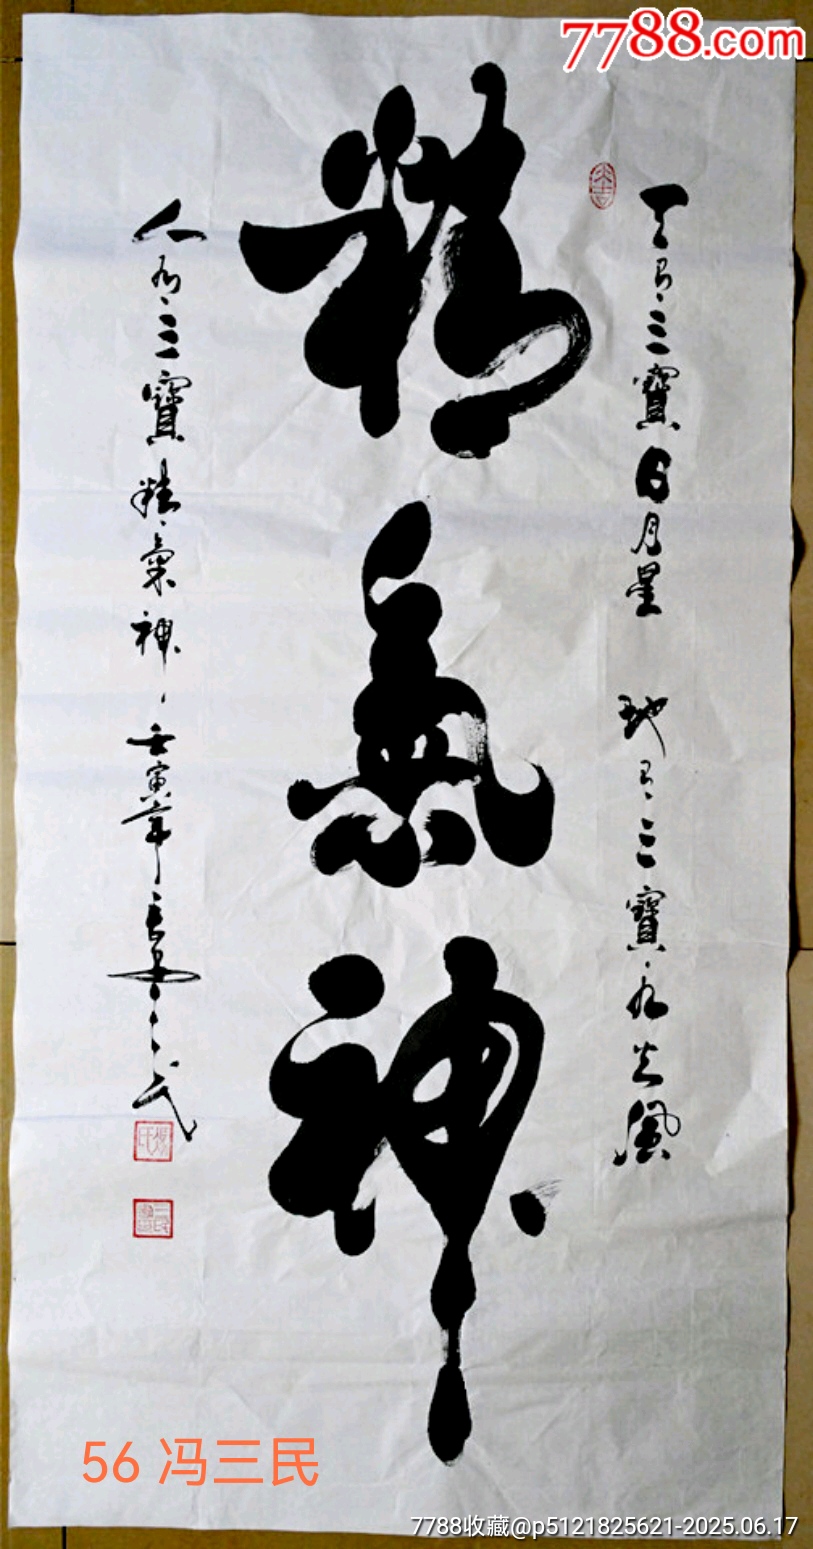 7788.com
天有三寶日月星 地有三寶水火風
精氣神
人有三寶精氣神 壬寅年
56 冯三民
7788收藏@p5121825621-2025.06.17